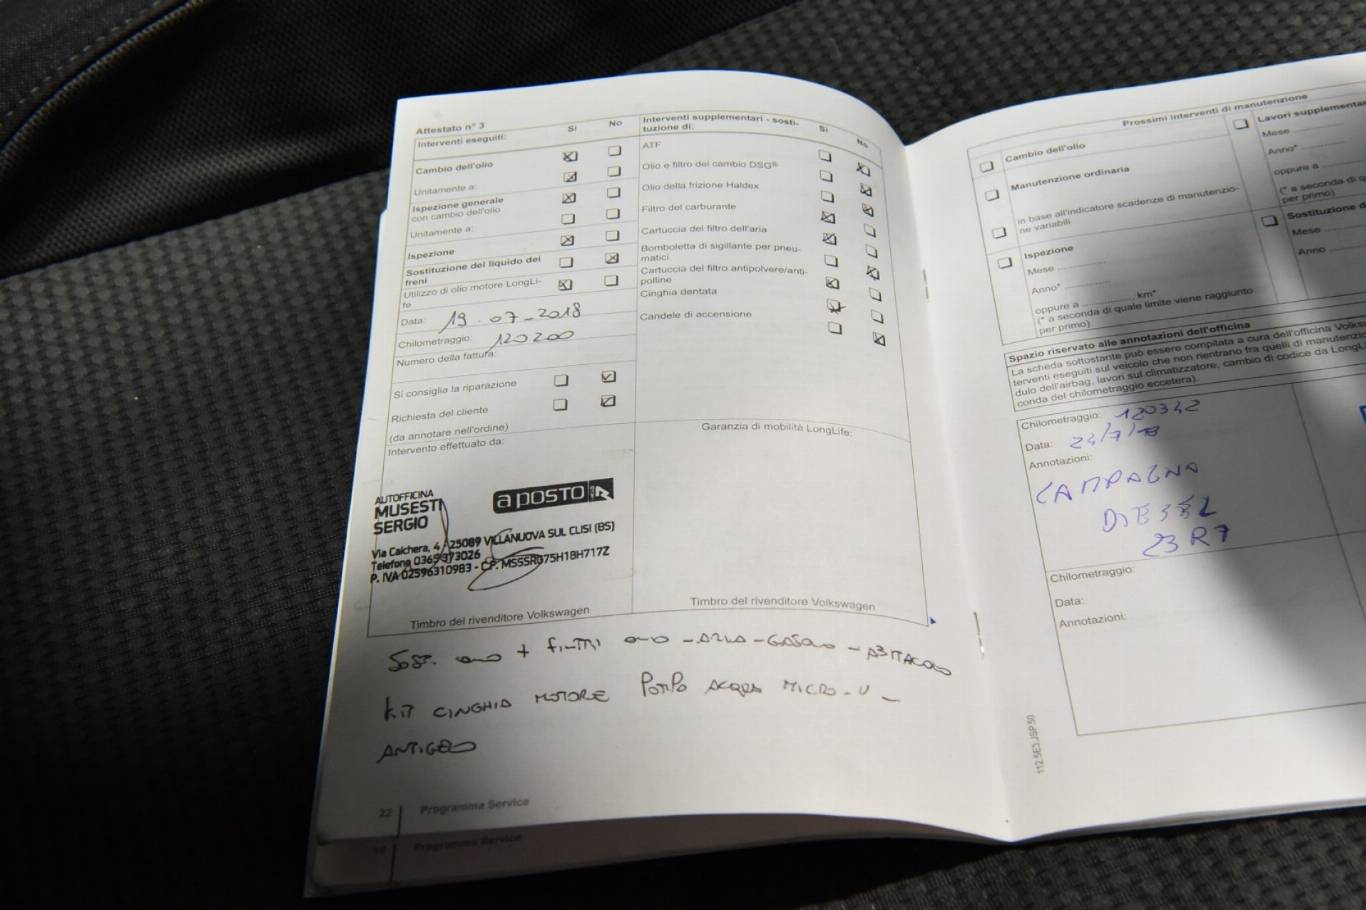 Attestato n° 3
Interventi eseguiti: Si No
Cambio dell'olio
Unitamente a:
Ispezione generale
con cambio dell'olio
Unitamente a:
Ispezione
Sostituzione del liquido dei
freni
Utilizzo di olio motore LongLi-
fe
Data: 19.07-2018
Chilometraggio: 120200
Numero della fattura:
Si consiglia la riparazione
Richiesta del cliente
(da annotare nell'ordine)
Intervento effettuato da:
AUTOFFICINA
MUSESTI
SERGIO
a posto
Via Calchera, 4 25089 VILLANUOVA SUL CLISI (BS)
Telefono 0365 373026
P. IVA 02596310983 - CF. MSSSRG75H18H717Z
Timbro del rivenditore Volkswagen
Interventi supplementari - sosti-
tuzione di: Si No
ATF
Olio e filtro del cambio DSG®
Olio della frizione Haldex
Filtro del carburante
Cartuccia del filtro dell'aria
Bomboletta di sigillante per pneu-
matici
Cartuccia del filtro antipolvere/anti-
polline
Cinghia dentata
Candele di accensione
Garanzia di mobilità LongLife:
Timbro del rivenditore Volkswagen
SOST. OLIO + FILTRI OLIO - ARIA - GASOLIO - ABITACOLO
KIT CINGHIA MOTORE POMPA ACQUA MICRO-V -
ANTIGELO
22 Programma Service
Programma Service
Prossimi interventi di manutenzione
Cambio dell'olio
Manutenzione ordinaria
in base all'indicatore scadenze di manutenzio-
ne variabili
Ispezione
Mese
Anno*
oppure a km*
(* a seconda di quale limite viene raggiunto
per primo)
Lavori supplementar
Mese
Anno*
oppure a
(* a seconda di q
per primo)
Sostituzione d
Mese
Anno
Spazio riservato alle annotazioni dell'officina
La scheda sottostante può essere compilata a cura dell'officina Volksw
terventi eseguiti sul veicolo che non rientrano fra quelli di manutenzio
dulo dell'airbag, lavori sul climatizzatore, cambio di codice da LongLi
conda del chilometraggio eccetera).
Chilometraggio: 120342
Data: 24/7/18
Annotazioni:
CAMPAGNA
DIESEL
23R7
Chilometraggio:
Data:
Annotazioni:
112.5E3.JSP.50